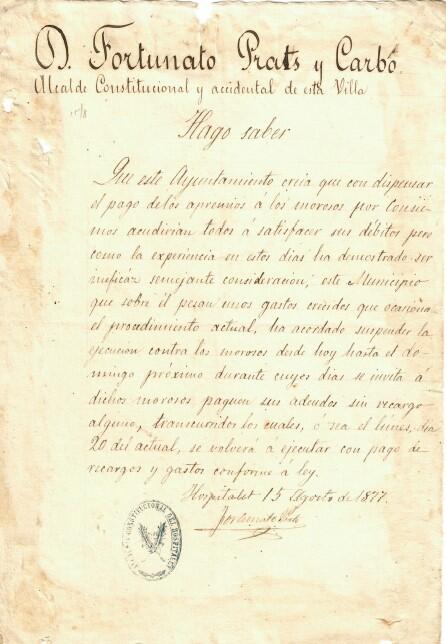 D. Fortunato Prats y Carbó
Alcalde Constitucional y accidental de esta Villa
Hago saber
Que este Ayuntamiento creia que con dispensar
el pago de los apremios á los morosos por Consu-
mos acudirían todos á satisfacer sus débitos pero
como la experiencia en estos dias ha demostrado ser
ineficáz semejante consideracion; este Municipio
que sobre él pesan unos gastos crecidos que ocasiona
el procedimiento actual, ha acordado suspender la
ejecucion contra los morosos desde hoy hasta el do-
mingo próximo durante cuyos dias se invita á
dichos morosos paguen sus adeudos sin recargo
alguno, transcuridos los cuales, ó sea el lunes, dia
20 del actual, se volverá á ejecutar con pago de
recargos y gastos conforme á ley.
Hospitalet 15 Agosto de 1877.
Fortunato Prats
CONSTITUCIONAL DEL HOSPITALET